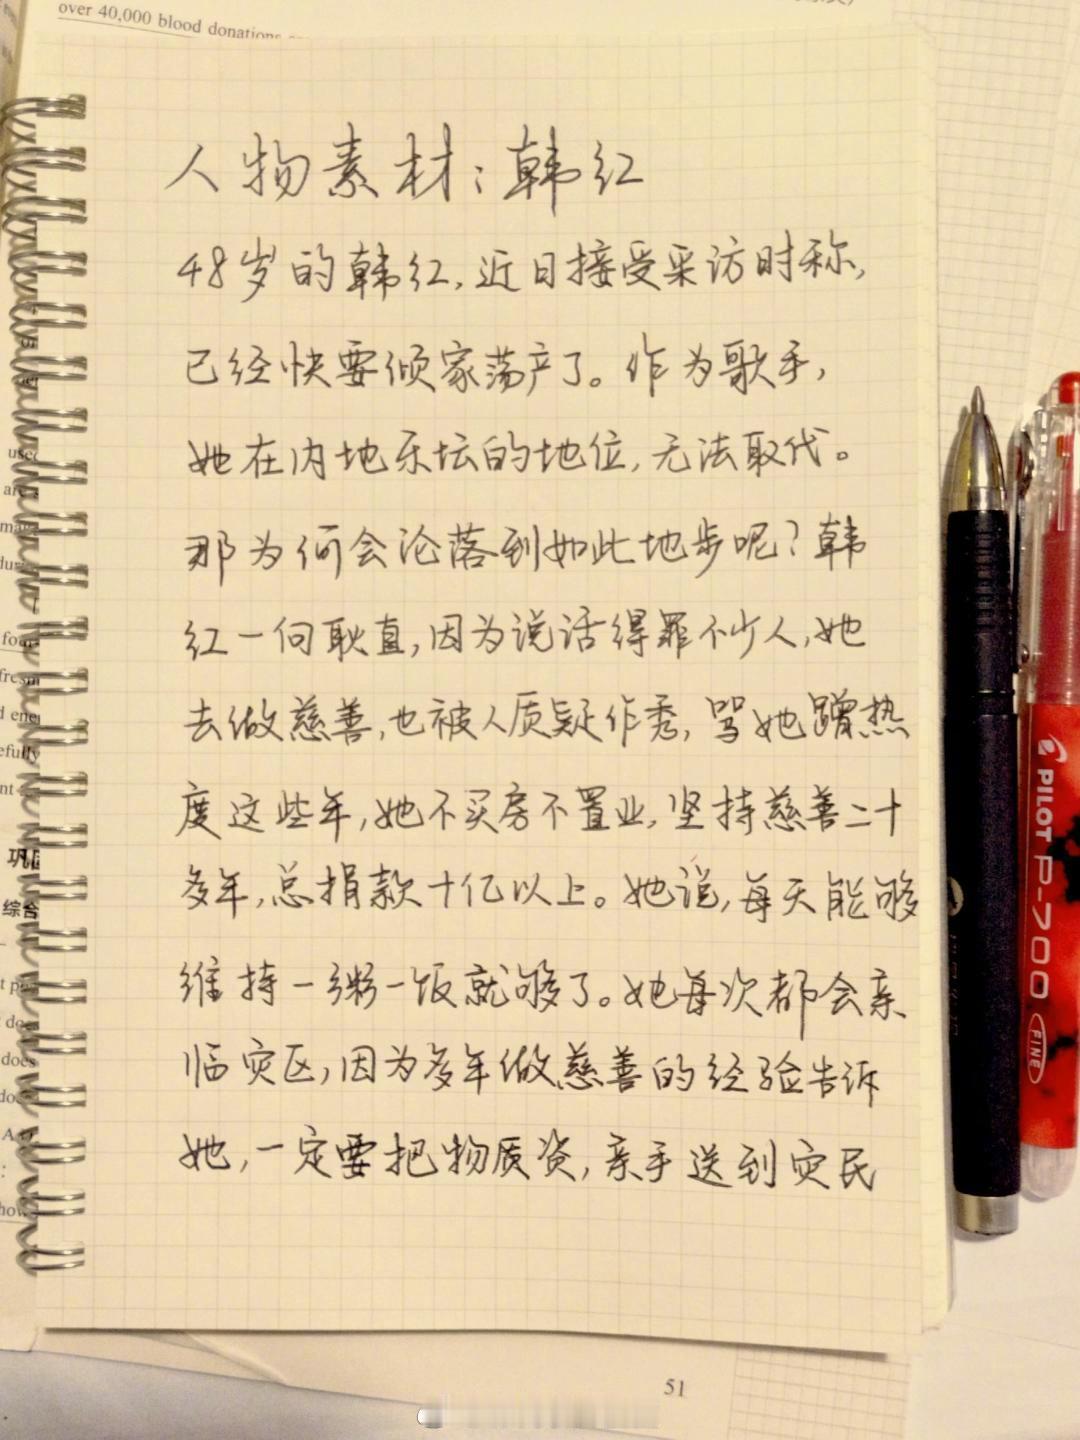 over 40,000 blood donations
人物素材：韩红
48岁的韩红，近日接受采访时称，
已经快要倾家荡产了。作为歌手，
她在内地乐坛的地位，无法取代。
那为何会沦落到如此地步呢？韩
红一向耿直，因为说话得罪不少人，她
去做慈善，也被人质疑作秀，骂她蹭热
度这些年，她不买房不置业，坚持慈善二十
多年，总捐款十亿以上。她说，每天能够
维持一粥一饭就够了。她每次都会亲
临灾区，因为多年做慈善的经验告诉
她，一定要把物质资，亲手送到灾民
PILOT P-700 FINE
巩
综合
51